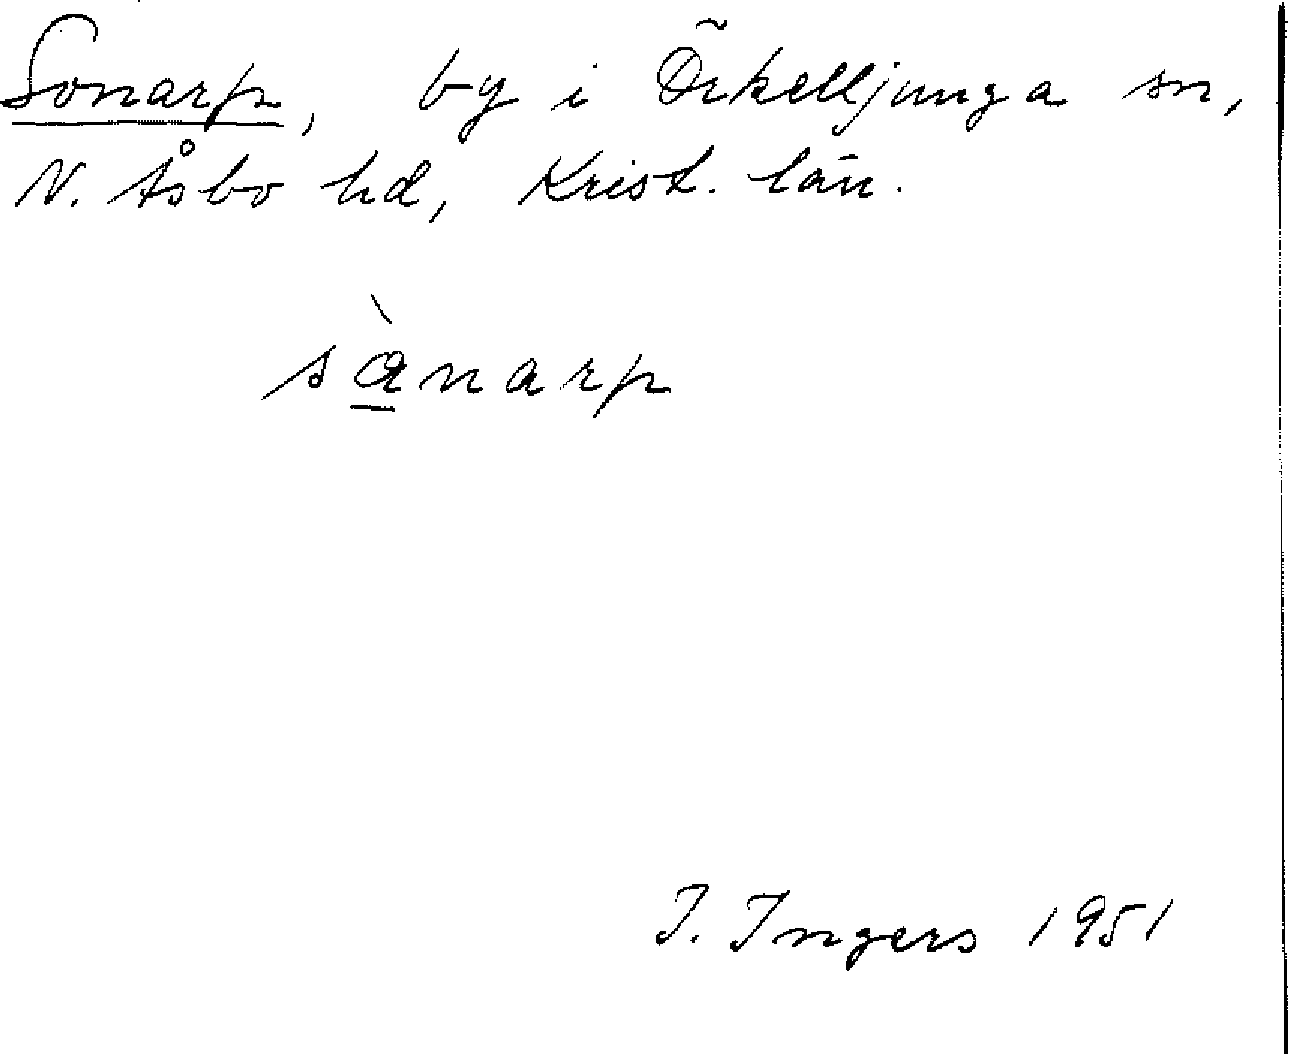 Sonarp, by i Örkelljunga sn,
N. Åsbo hd, Krist. län.
sànarp
I. Ingers 1951